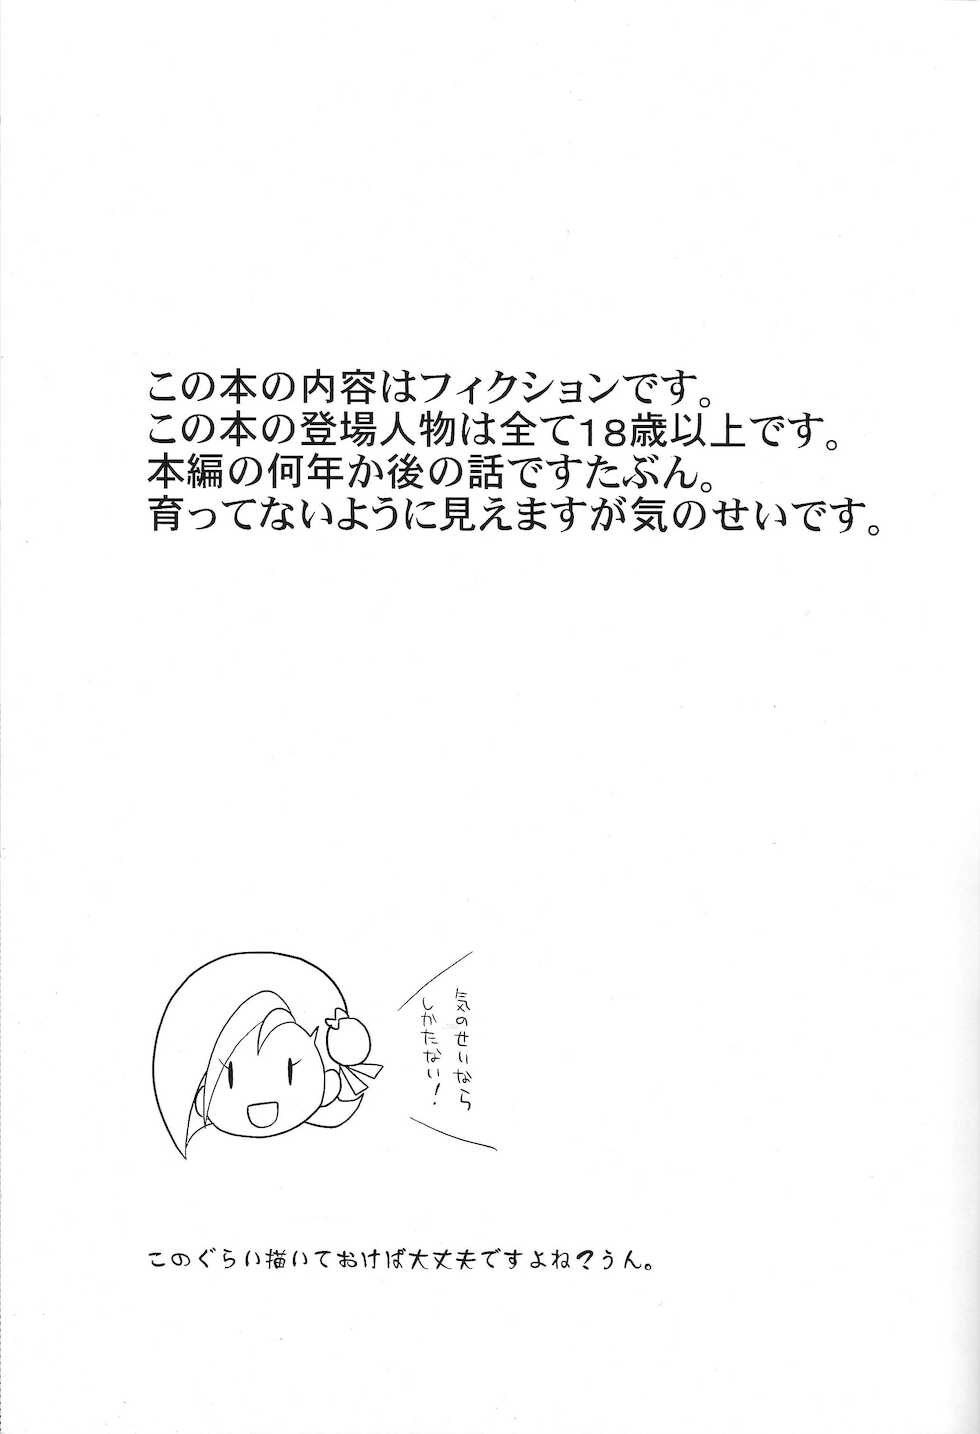 この本の内容はフィクションです。
この本の登場人物は全て18歳以上です。
本編の何年か後の話ですたぶん。
育ってないように見えますが気のせいです。
気のせいなら
しかたない!
このぐらい描いておけば大丈夫ですよね?うん。